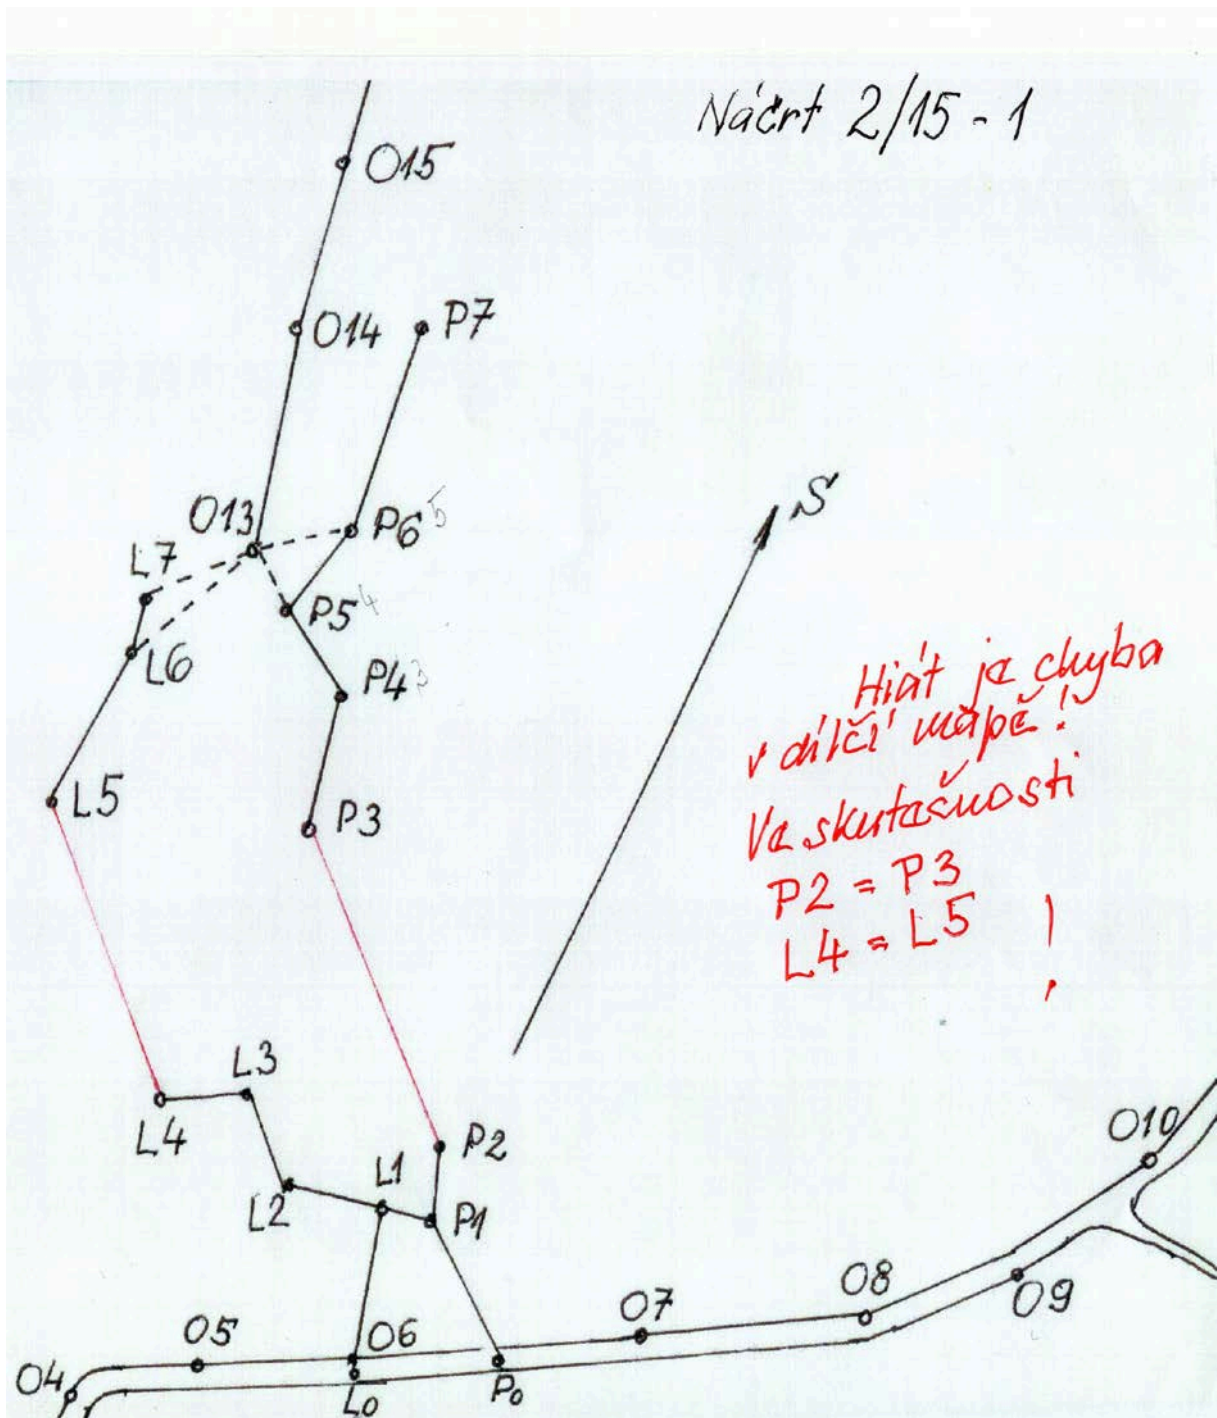 Náčrt 2/15 - 1
O15
O14
P7
O13
P6 5
L7
P5 4
L6
P4
S
L5
P3
Hiát je chyba
v dílčí mapě!
Ve skutečnosti
P2 = P3
L4 = L5 !
L3
L4
P2
L1
L2
P1
O10
O8
O9
O7
O5
O6
O4
L0
P0